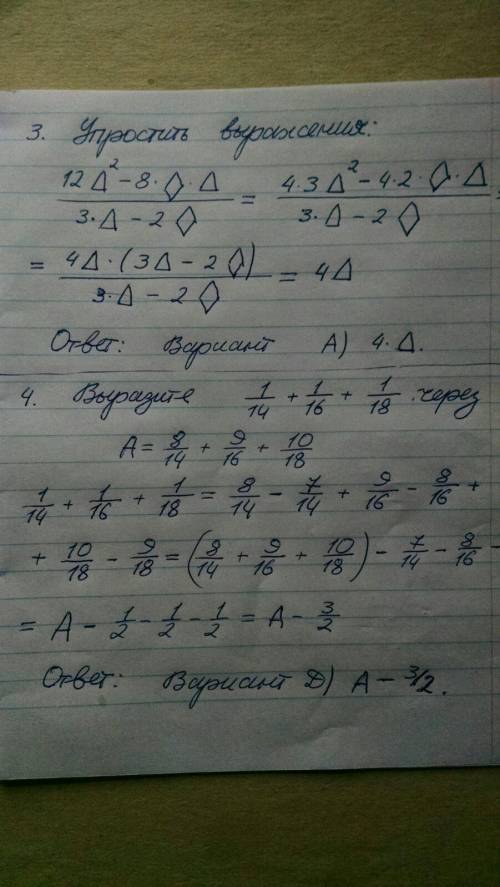 3. Упростить выражения:
(12Δ² − 8·◊·Δ)/(3·Δ − 2◊) = (4·3Δ² − 4·2·◊·Δ)/(3·Δ − 2◊) =
= (4Δ·(3Δ − 2◊))/(3·Δ − 2◊) = 4Δ
Ответ: Вариант А) 4·Δ.
4. Выразите 1/14 + 1/16 + 1/18 через
A = 8/14 + 9/16 + 10/18
1/14 + 1/16 + 1/18 = 8/14 − 7/14 + 9/16 − 8/16 +
+ 10/18 − 9/18 = (8/14 + 9/16 + 10/18) − 7/14 − 8/16 −
= A − 1/2 − 1/2 − 1/2 = A − 3/2
Ответ: Вариант D) A − 3/2.